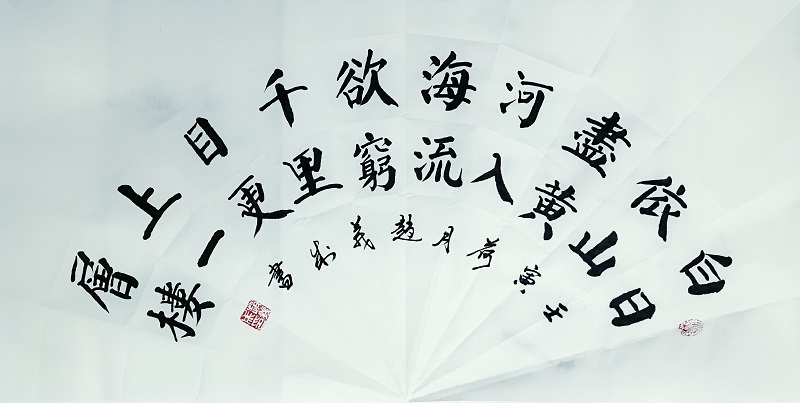 白日
依山
盡黃
河入
海流
欲窮
千里
目更
上一
層樓
壬寅荷月趙義成書